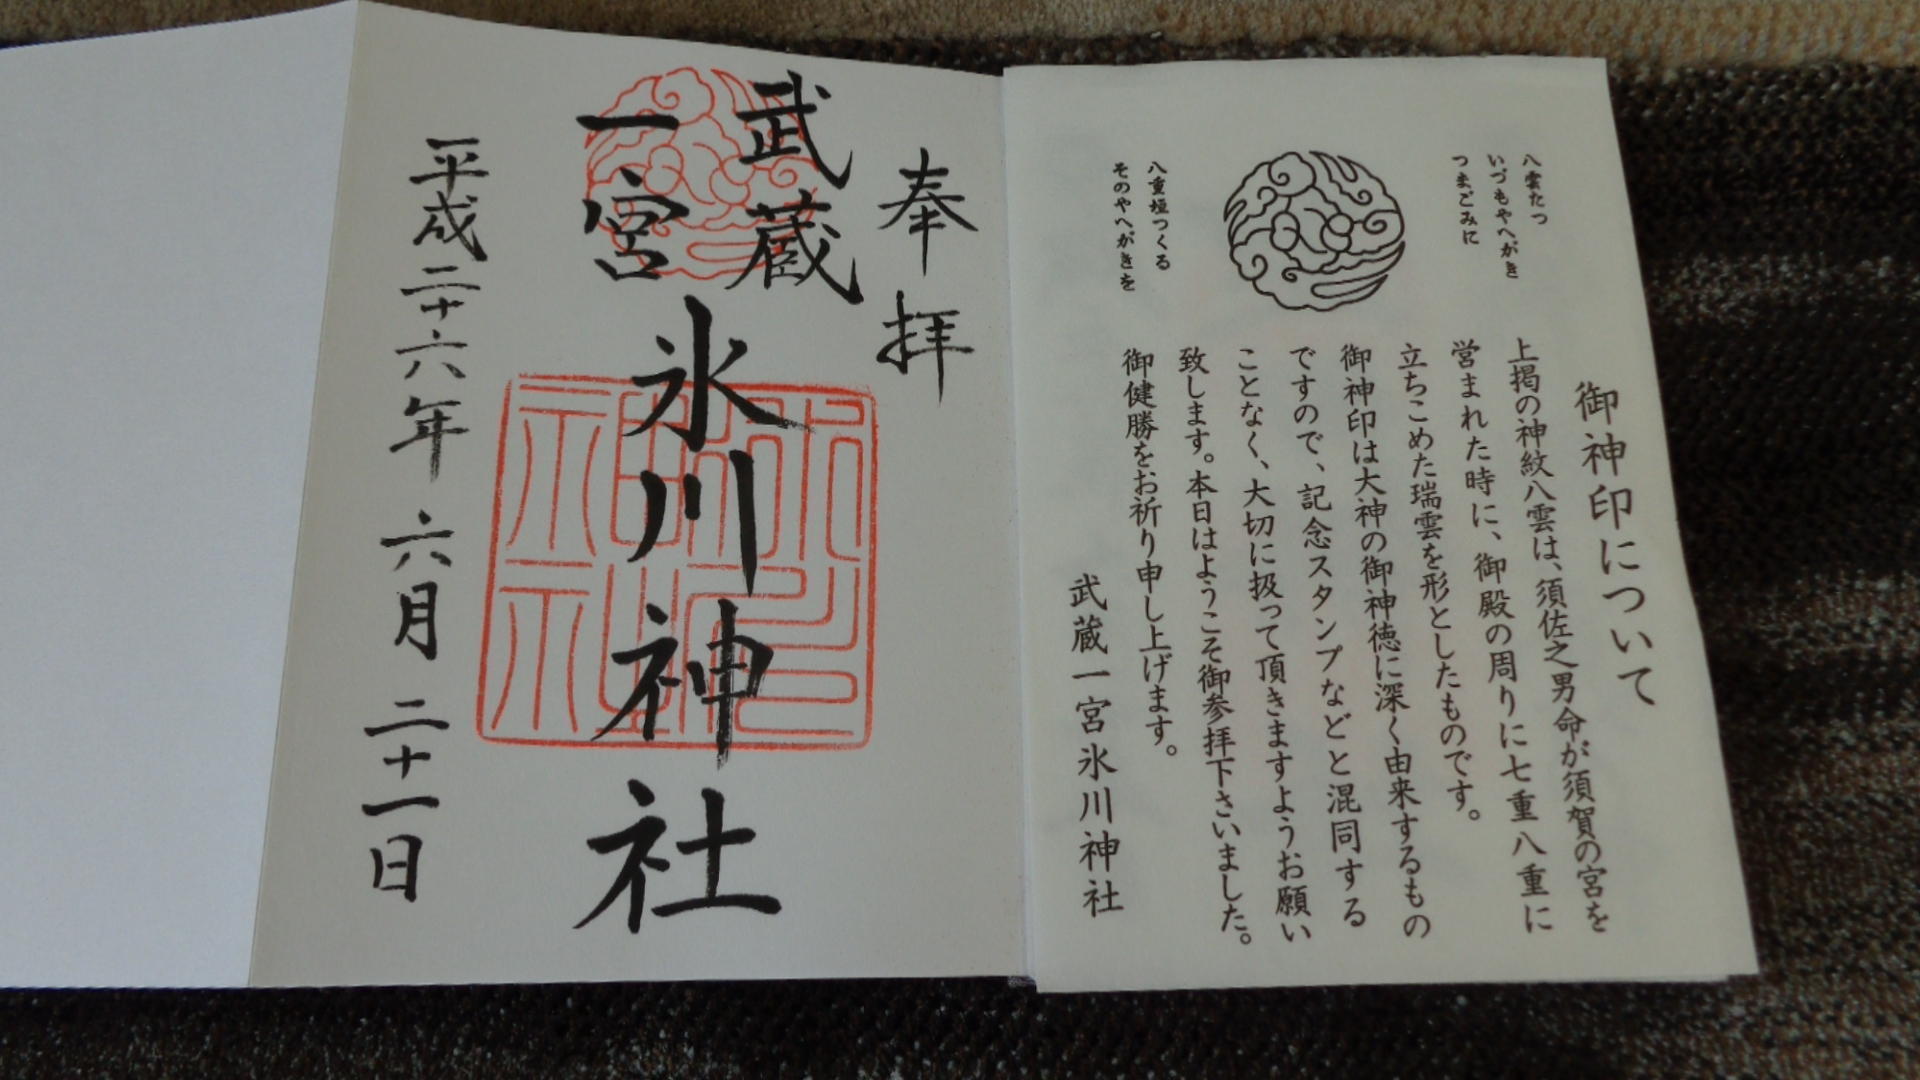 御神印について
八雲たつ
いづもやへがき
つまごみに
八重垣つくる
そのやへがきを
上掲の神紋八雲は、須佐之男命が須賀の宮を
営まれた時に、御殿の周りに七重八重に
立ちこめた瑞雲を形としたものです。
御神印は大神の御神徳に深く由来するもの
ですので、記念スタンプなどと混同する
ことなく、大切に扱って頂きますようお願い
致します。本日はようこそ御参拝下さいました。
御健勝をお祈り申し上げます。
武蔵一宮氷川神社
奉拝
武蔵
一宮
氷川神社
平成二十六年六月二十一日